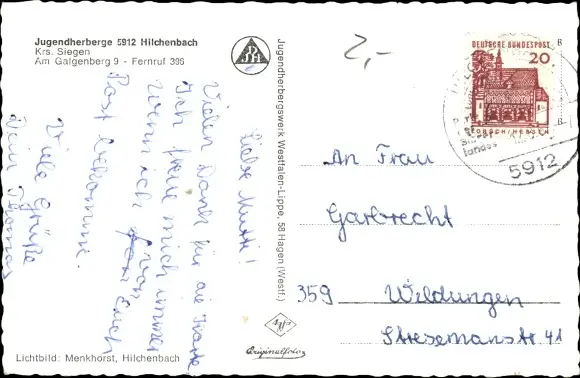 Jugendherberge 5912 Hilchenbach
Krs. Siegen
Am Galgenberg 9 - Fernruf 396
Liebe Mutti!
Vielen Dank für die Karte
Ich freue mich immer
wenn ich von Euch
Post bekomme.
Viele Grüße
Dein Thomas
Lichtbild: Menkhorst, Hilchenbach
Jugendherbergswerk Westfalen-Lippe, 58 Hagen (Westf.)
Originalfoto
2,-
DEUTSCHE BUNDESPOST
20
LORSCH/HESSEN
B
B
5912
An Frau
Garbrecht
359 Wildungen
Stresemanstr 41